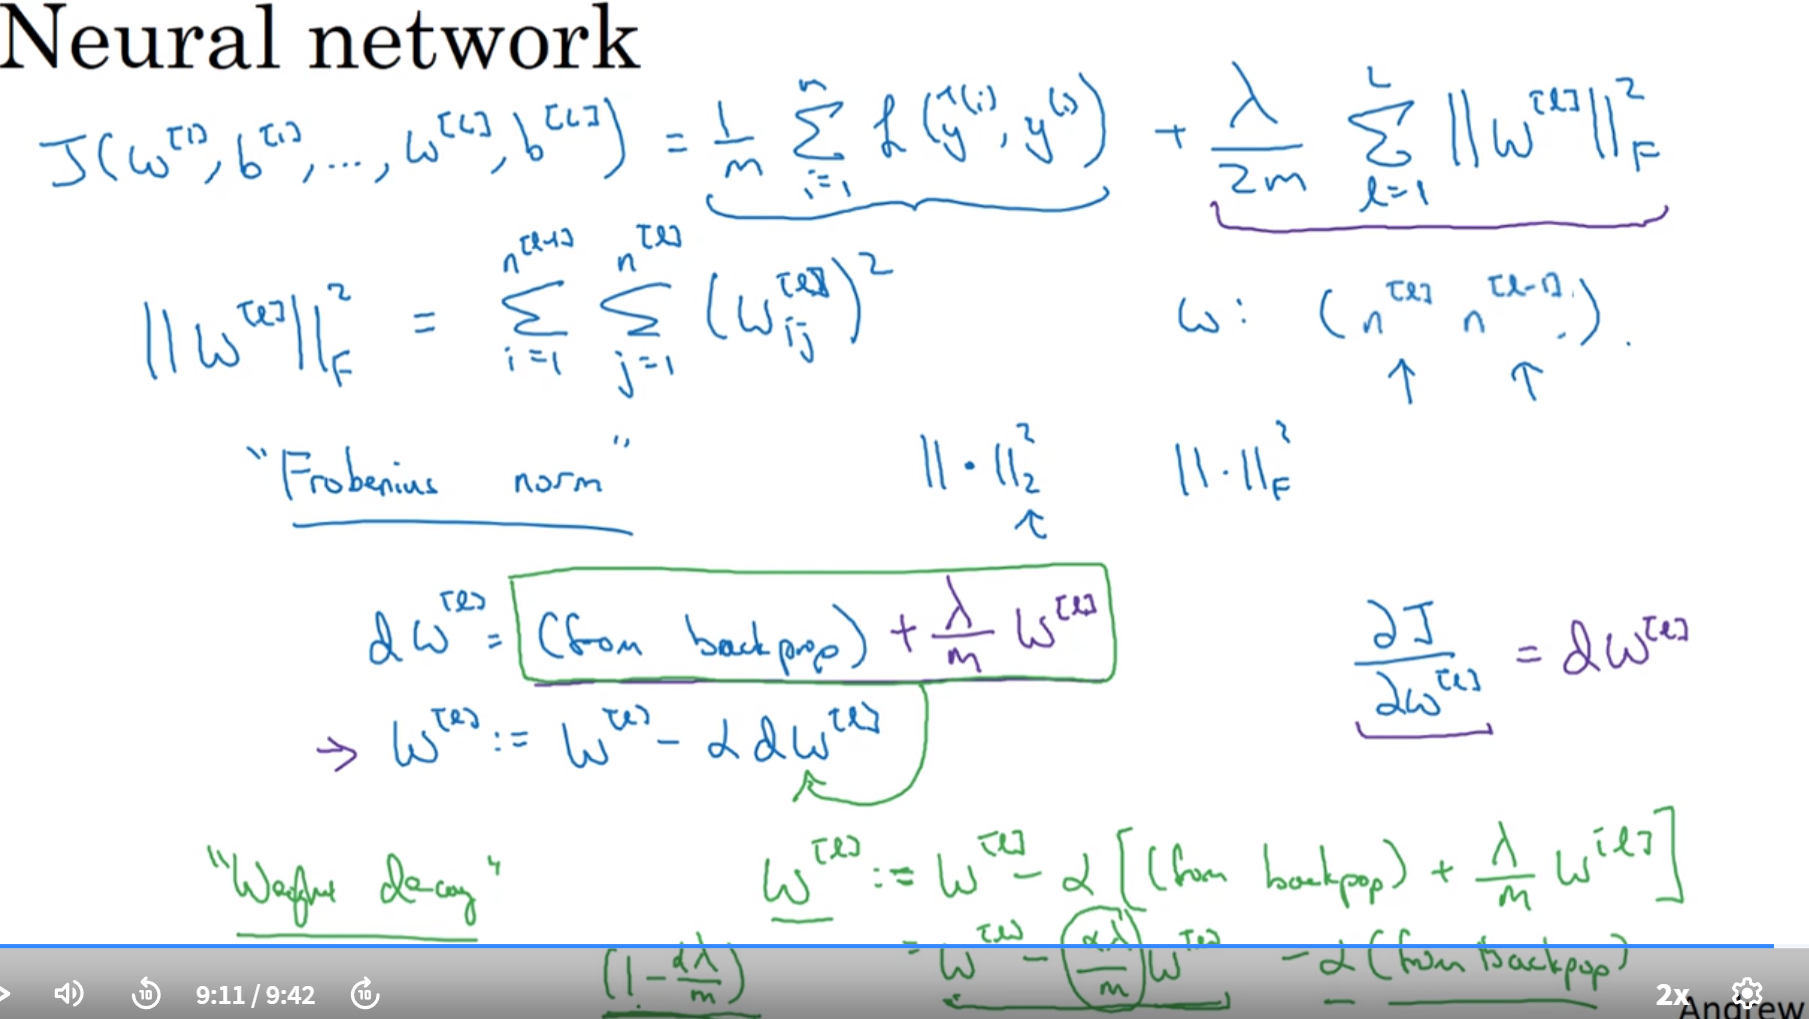 Neural network
J(w^[1], b^[1], ..., w^[L], b^[L]) = 1/m Σ_{i=1}^{n} ℒ(ŷ^(i), y^(i)) + λ/2m Σ_{l=1}^{L} ||w^[l]||_F^2
||w^[l]||_F^2 = Σ_{i=1}^{n^[l-1]} Σ_{j=1}^{n^[l]} (w_ij^[l])^2   w: (n^[l] n^[l-1]).
↑ ↑
"Frobenius norm"   ||·||_2^2   ||·||_F^2
↑
dw^[l] = (from backprop) + λ/m w^[l]   ∂J/∂w^[l] = dw^[l]
→ w^[l] := w^[l] - α dw^[l]
"Weight decay"   w^[l] := w^[l] - α [(from backpop) + λ/m w^[l]]
(1 - αλ/m)   = w^[l] - αλ/m w^[l] - α (from backpop)
10 9:11 / 9:42 10 2x
Andrew